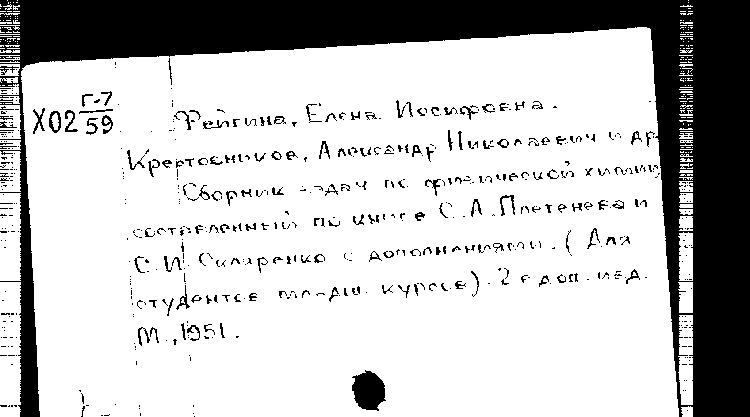 Х02 Г-7
59
Фейгина, Елена Иосифовна.
Крестовников, Александр Николаевич и др
Сборник задач по физической химии
составленный по книге С.А. Плетенева и
С.И. Скляренко с дополнениями. (Для
студентов курсов). 2е доп. изд.
М., 1951.